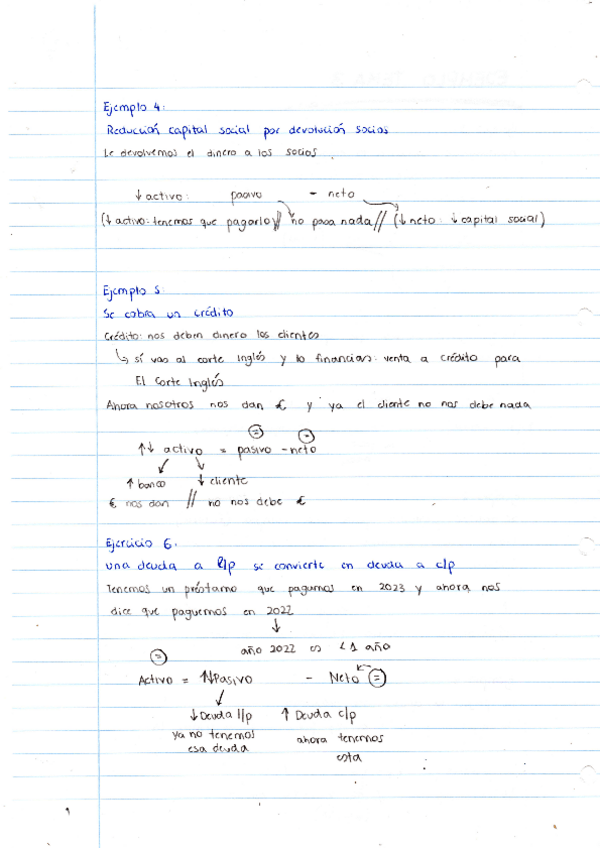 Ejemplo 4:
Reducción capital social por devolución socios
Le devolvemos el dinero a los socios.
↓ activo: pasivo - neto
(↓ activo: tenemos que pagarlo // no pasa nada // (↓ neto: ↓ capital social)
Ejemplo 5:
Se cobra un crédito
Crédito: nos deben dinero los clientes
↳ si vas al corte inglés y lo financias: venta a crédito para
El Corte Inglés
Ahora nosotros nos dan € y ya el cliente no nos debe nada
= =
↑↓ activo = pasivo - neto
↑ banco ↓ cliente
€ nos dan // no nos debe €
Ejercicio 6.
una deuda a l/p se convierte en deuda a c/p
Tenemos un préstamo que pagamos en 2023 y ahora nos
dice que paguemos en 2022
↓
= año 2022 es < 1 año
Activo = ↑↓ Pasivo - Neto =
↓ Deuda l/p ↑ Deuda c/p
ya no tenemos ahora tenemos
esa deuda esta